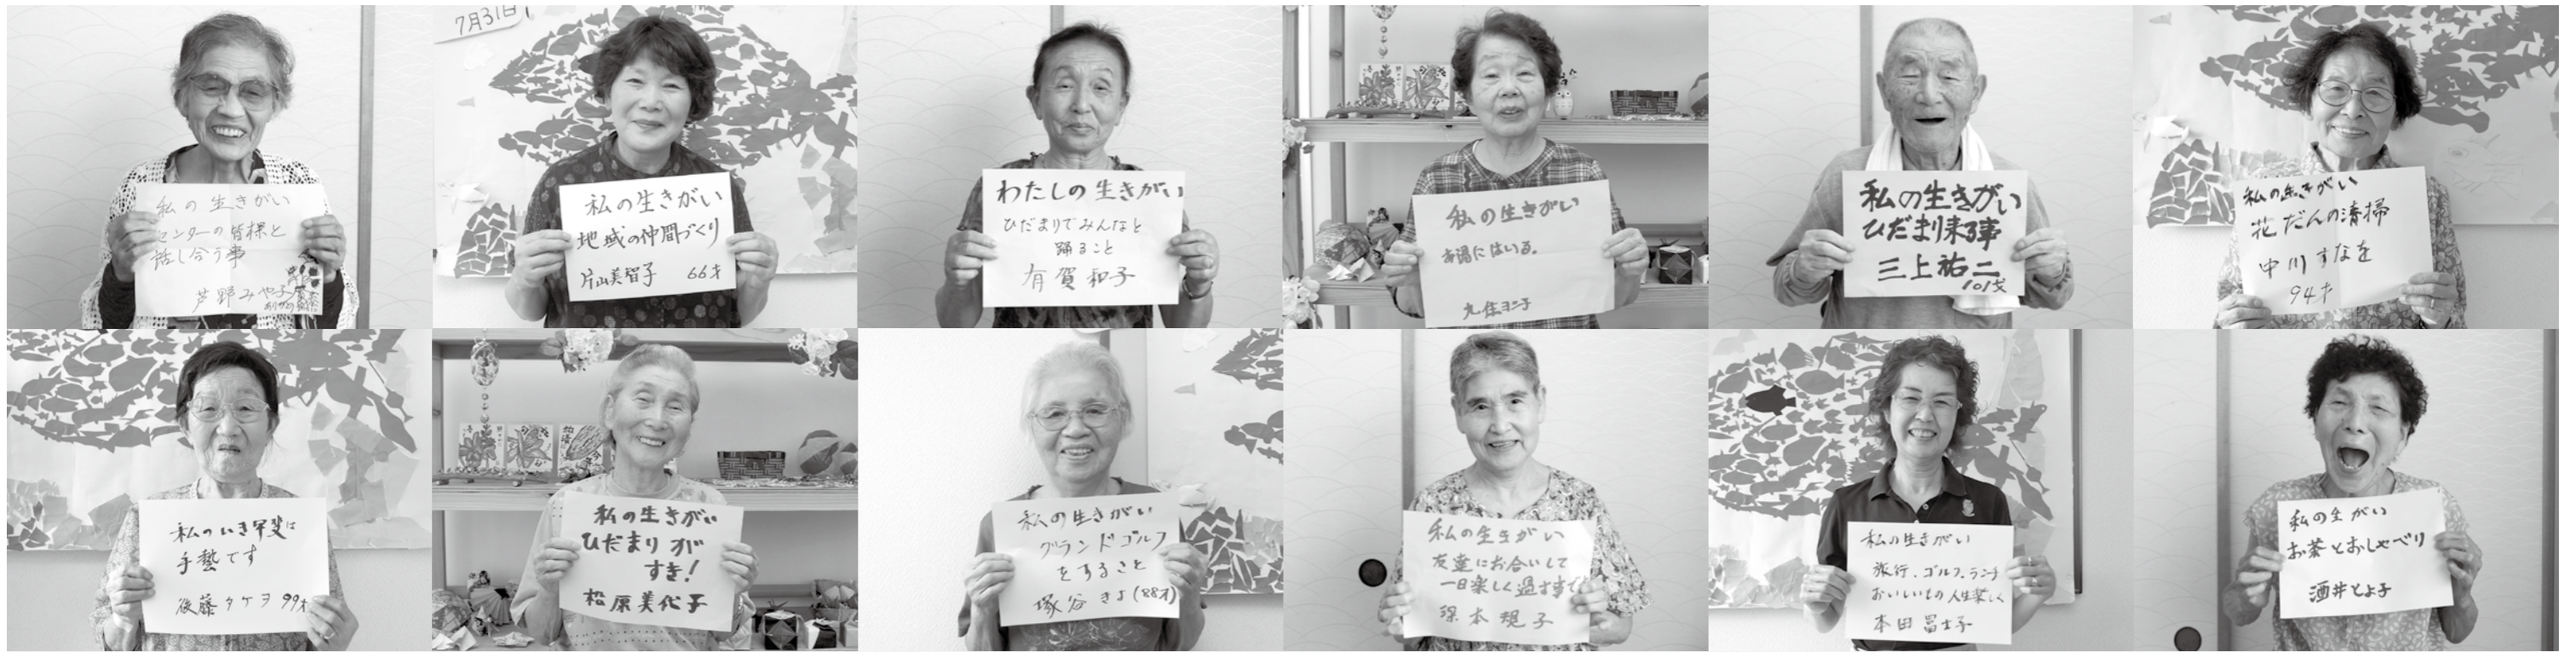 私の生きがい
センターの皆様と
話し合う事
芦野みや子
7月31日
私の生きがい
地域の仲間づくり
片山美智子 66才
わたしの生きがい
ひだまりでみんなと
踊ること
有賀和子
私の生きがい
お湯にはいる。
私の生きがい
ひだまり来る事
三上祐二
101才
私の生きがい
花だんの清掃
中川すなを
94才
私のいき甲斐は
手藝です
後藤タケヲ 99才
私の生きがい
ひだまりが
すき!
松原美代子
私の生きがい
グランドゴルフ
をすること
塚谷きよ(88才)
私の生きがい
友達にお合いして
一日楽しく過す事で
深本規子
私の生きがい
旅行、ゴルフ、ランチ
おいしいもの人生楽しく
本田冨士子
私の生がい
お茶とおしゃべり
酒井とよ子